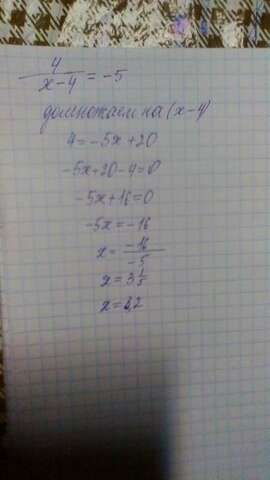 4/(x-4) = -5
домножаем на (x-4)
4 = -5x + 20
-5x+20-4=0
-5x+16=0
-5x=-16
x = -16/-5
x = 3 1/5
x = 3,2